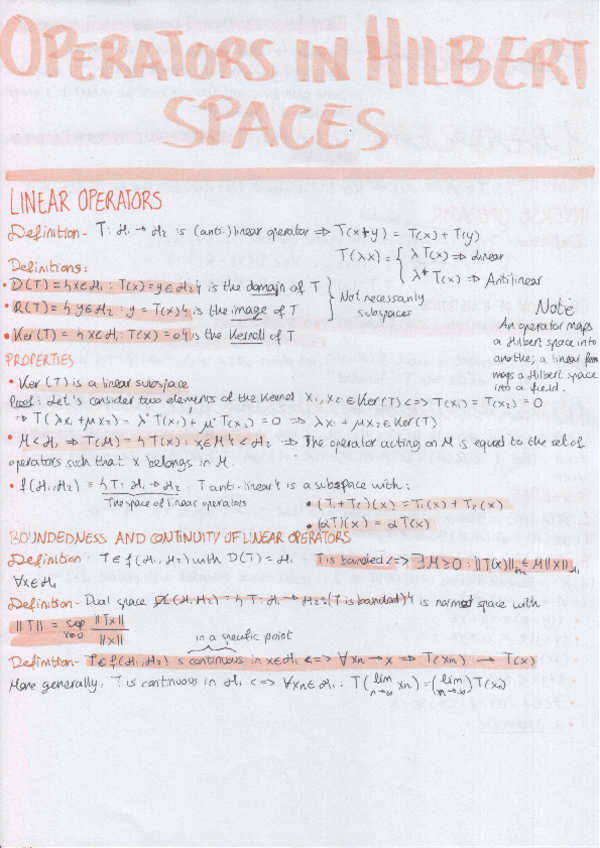 OPERATORS IN HILBERT
SPACES
LINEAR OPERATORS
Definition - T: H₁ → H₂ is (anti-)linear operator => T(x+y) = T(x) + T(y)
T(λx) = { λT(x) => Linear
λ* T(x) => Antilinear
Definitions:
• D(T) = {x∈H₁ : T(x) = y∈H₂} is the domain of T
• R(T) = {y∈H₂ : y = T(x)} is the image of T
• Ker(T) = {x∈H₁ : T(x) = 0} is the Kernell of T
} Not necessarily
subspaces
Note
An operator maps
a Hilbert space into
another; a linear form
maps a Hilbert space
into a field.
PROPERTIES
• Ker(T) is a linear subspace
Proof: Let's consider two elements of the kernel x₁, x₂ ∈ Ker(T) <=> T(x₁) = T(x₂) = 0
=> T(λx₁ + μx₂) = λ* T(x₁) + μ* T(x₂) = 0 => λx₁ + μx₂ ∈ Ker(T)
• M < H₁ => T(M) = {T(x) : x∈M} < H₂ => The operator acting on M is equal to the set of
operators such that x belongs in M.
• f(H₁, H₂) = {T: H₁ → H₂ : T anti-linear} is a subspace with:
The space of linear operators
• (T₁+T₂)(x) = T₁(x) + T₂(x)
• (αT)(x) = αT(x)
BOUNDEDNESS AND CONTINUITY OF LINEAR OPERATORS
Definition - T∈f(H₁, H₂) with D(T) = H₁ T is bounded <=> ∃M≥0 : ||T(x)||H₂ ≤ M||x||H₁
∀x∈H₁
Definition - Dual space L(H₁, H₂) = {T: H₁ → H₂ : (T is bounded)} is normed space with
||T|| = sup x≠0 ||Tx|| / ||x||
in a specific point
Definition - T∈f(H₁, H₂) is continuous in x∈H₁ <=> ∀xn → x => T(xn) → T(x)
More generally, T is continuous in H₁ <=> ∀xn∈H₁ : T(lim n→∞ xn) = (lim n→∞) T(xn)